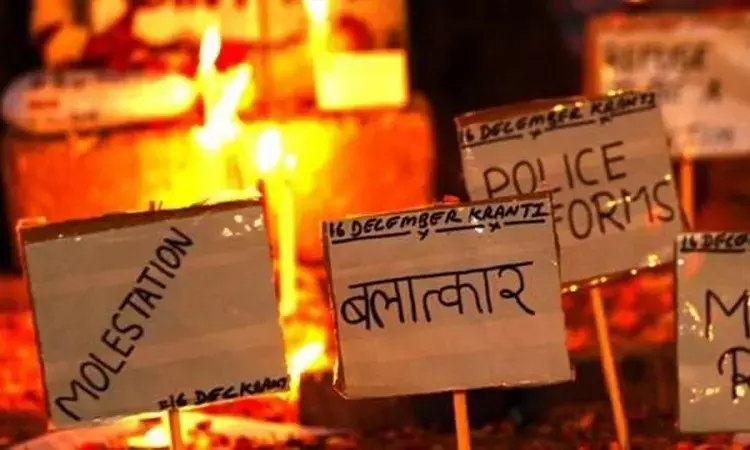 MOLESTATION
16 DECKRANTI
16 DECEMBER KRANTI
बलात्कार
16 DECEMBER KRANTI
POLICE
FORMS
16 DECE
M